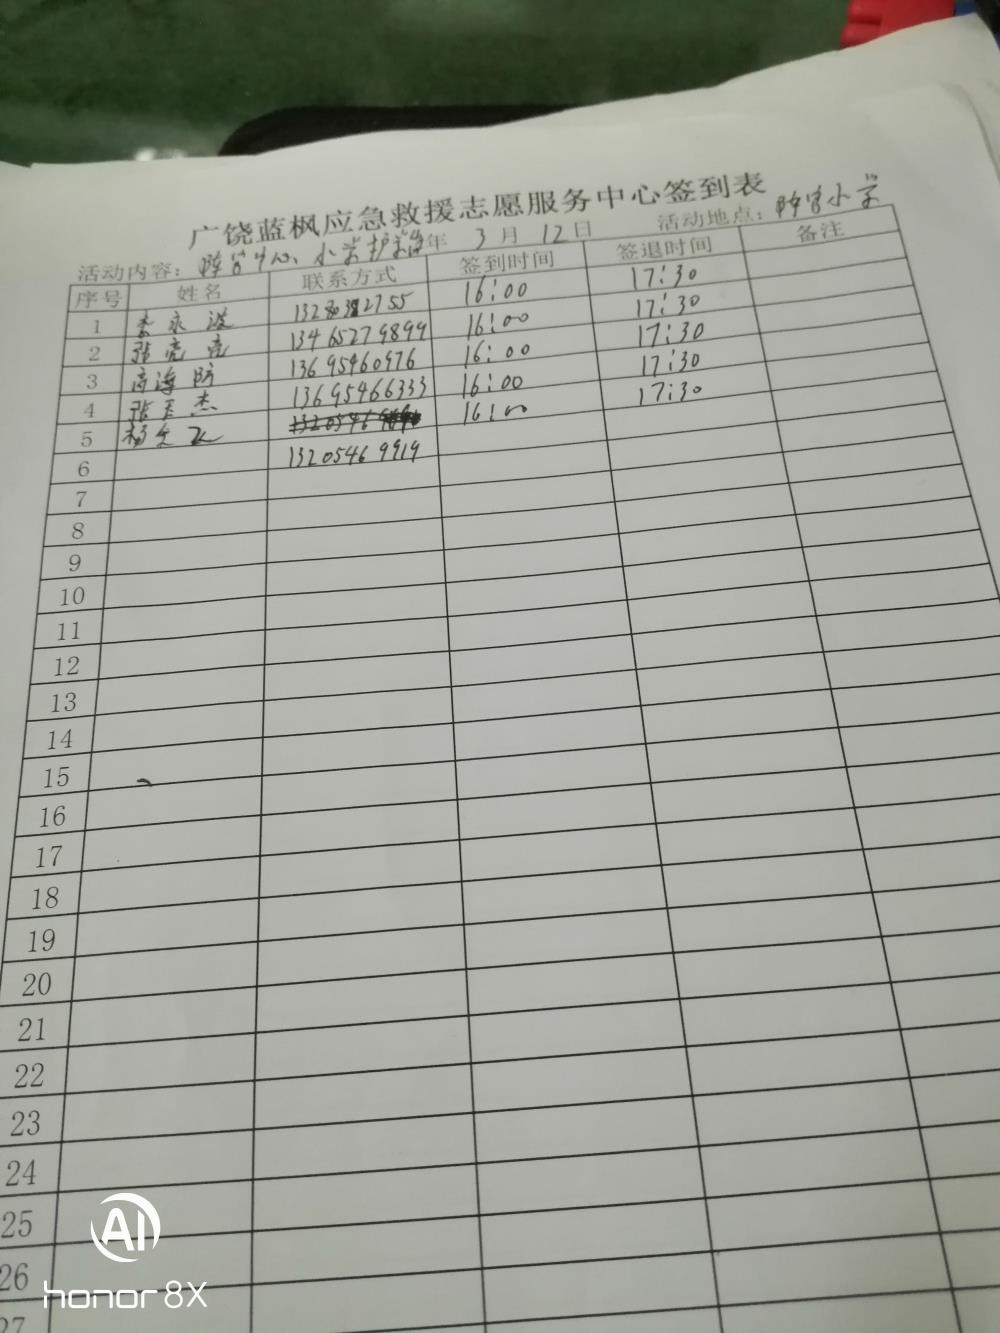 广饶蓝枫应急救援志愿服务中心签到表
活动内容：陈官中心小学护 年 3月12日 活动地点：陈官小学
序号 姓名 联系方式 签到时间 签退时间 备注
1 李永波 16:00 17:30
2 张亮亮 13465279899 16:00 17:30
3 高海防 13695460976 16:00 17:30
4 张玉杰 13695466333 16:00 17:30
5 杨文飞 16:00 17:30
6 13205469919
7
8
9
10
11
12
13
14
15
16
17
18
19
20
21
22
23
24
25
26
27
AI
honor 8X